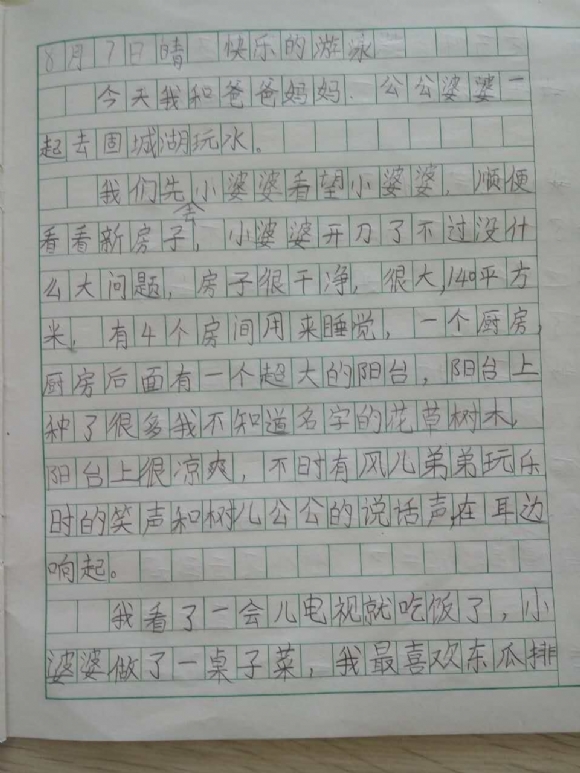 8月7日晴 快乐的游泳
今天我和爸爸妈妈、公公婆婆一
起去固城湖玩水。
我们先会小婆婆看望小婆婆,顺便
看看新房子,小婆婆开刀了不过没什
么大问题,房子很干净,很大,140平方
米,有4个房间用来睡觉,一个厨房,
厨房后面有一个超大的阳台,阳台上
种了很多我不知道名字的花草树木,
阳台上很凉爽,不时有风儿弟弟玩乐
时的笑声和树儿公公的说话声,在耳边
响起。
我看了一会儿电视就吃饭了,小
婆婆做了一桌子菜,我最喜欢东瓜排